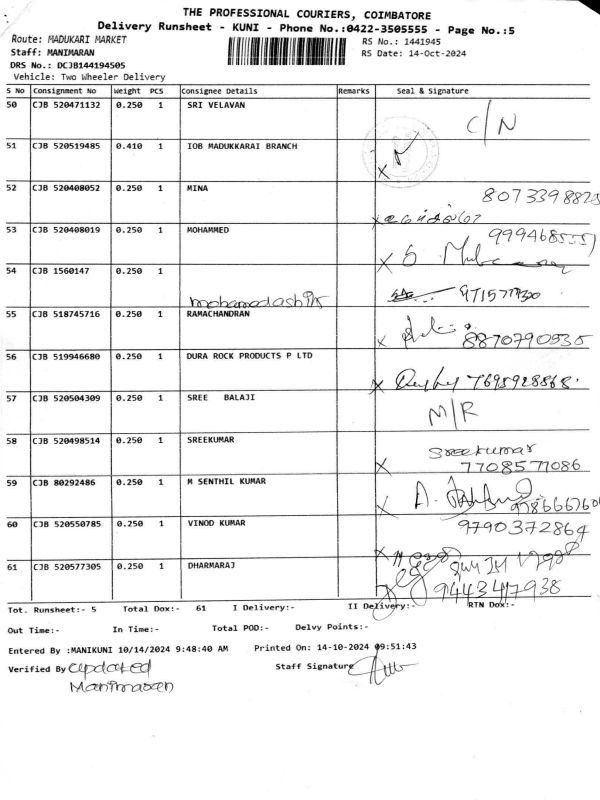 THE PROFESSIONAL COURIERS, COIMBATORE
Delivery Runsheet - KUNI - Phone No.:0422-3505555 - Page No.:5
Route: MADUKARI MARKET
RS No.: 1441945
Staff: MANIMARAN
RS Date: 14-Oct-2024
DRS No.: DCJB144194505
Vehicle: Two Wheeler Delivery
S No Consignment No Weight PCS Consignee Details Remarks Seal & Signature
50 CJB 520471132 0.250 1 SRI VELAVAN C/N
51 CJB 520519485 0.410 1 IOB MADUKKARAI BRANCH X
52 CJB 520408052 0.250 1 MINA 8073398825
X
53 CJB 520408019 0.250 1 MOHAMMED
X
54 CJB 1560147 0.250 1
mohamadashik
55 CJB 518745716 0.250 1 RAMACHANDRAN
X 8870790535
56 CJB 519946680 0.250 1 DURA ROCK PRODUCTS P LTD
X 7695928868.
57 CJB 520504309 0.250 1 SREE BALAJI M/R
58 CJB 520498514 0.250 1 SREEKUMAR sreekumar
X 7708577086
59 CJB 80292486 0.250 1 M SENTHIL KUMAR
X A.
60 CJB 520550785 0.250 1 VINOD KUMAR 9790372864
X
61 CJB 520577305 0.250 1 DHARMARAJ
X 9443417938
Tot. Runsheet:- 5 Total Dox:- 61 I Delivery:- II Delivery:- RTN Dox:-
Out Time:- In Time:- Total POD:- Delvy Points:-
Entered By :MANIKUNI 10/14/2024 9:48:40 AM Printed On: 14-10-2024 09:51:43
Verified By updated Staff Signature
Manimaran